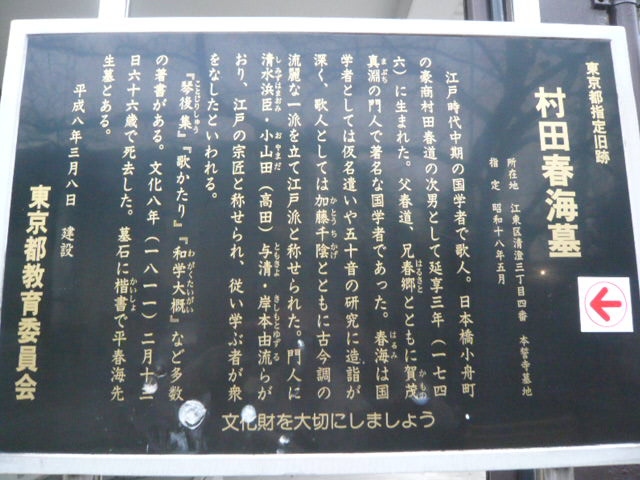 東京都指定旧跡
村田春海墓
所在地 江東区清澄三丁目四番 本誓寺墓地
指定 昭和十八年五月
江戸時代中期の国学者で歌人。日本橋小舟町
の豪商村田春道の次男として延享三年(一七四
六)に生まれた。父春道、兄春郷とともに賀茂
真淵の門人で著名な国学者であった。春海は国
学者としては仮名遣いや五十音の研究に造詣が
深く、歌人としては加藤千陰とともに古今調の
流麗な一派を立て江戸派と称せられた。門人に
清水浜臣・小山田(高田)与清・岸本由流らが
おり、江戸の宗匠と称せられ、従い学ぶ者が衆
をなしたといわれる。
『琴後集』『歌かたり』『和学大概』など多数
の著書がある。文化八年(一八一一)二月十三
日六十六歳で死去した。墓石に楷書で平春海先
生墓とある。
平成八年三月八日 建設
東京都教育委員会
文化財を大切にしましょう